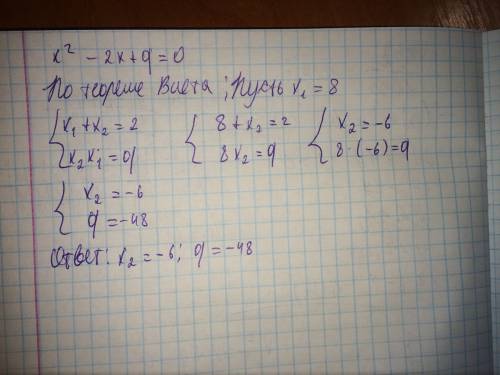 x² - 2x + q = 0
По теореме Виета ; Пусть x₁ = 8
{ x₁ + x₂ = 2 { 8 + x₂ = 2 { x₂ = -6
{ x₂ x₁ = q { 8x₂ = q { 8 · (-6) = q
{ x₂ = -6
{ q = -48
Ответ: x₂ = -6; q = -48